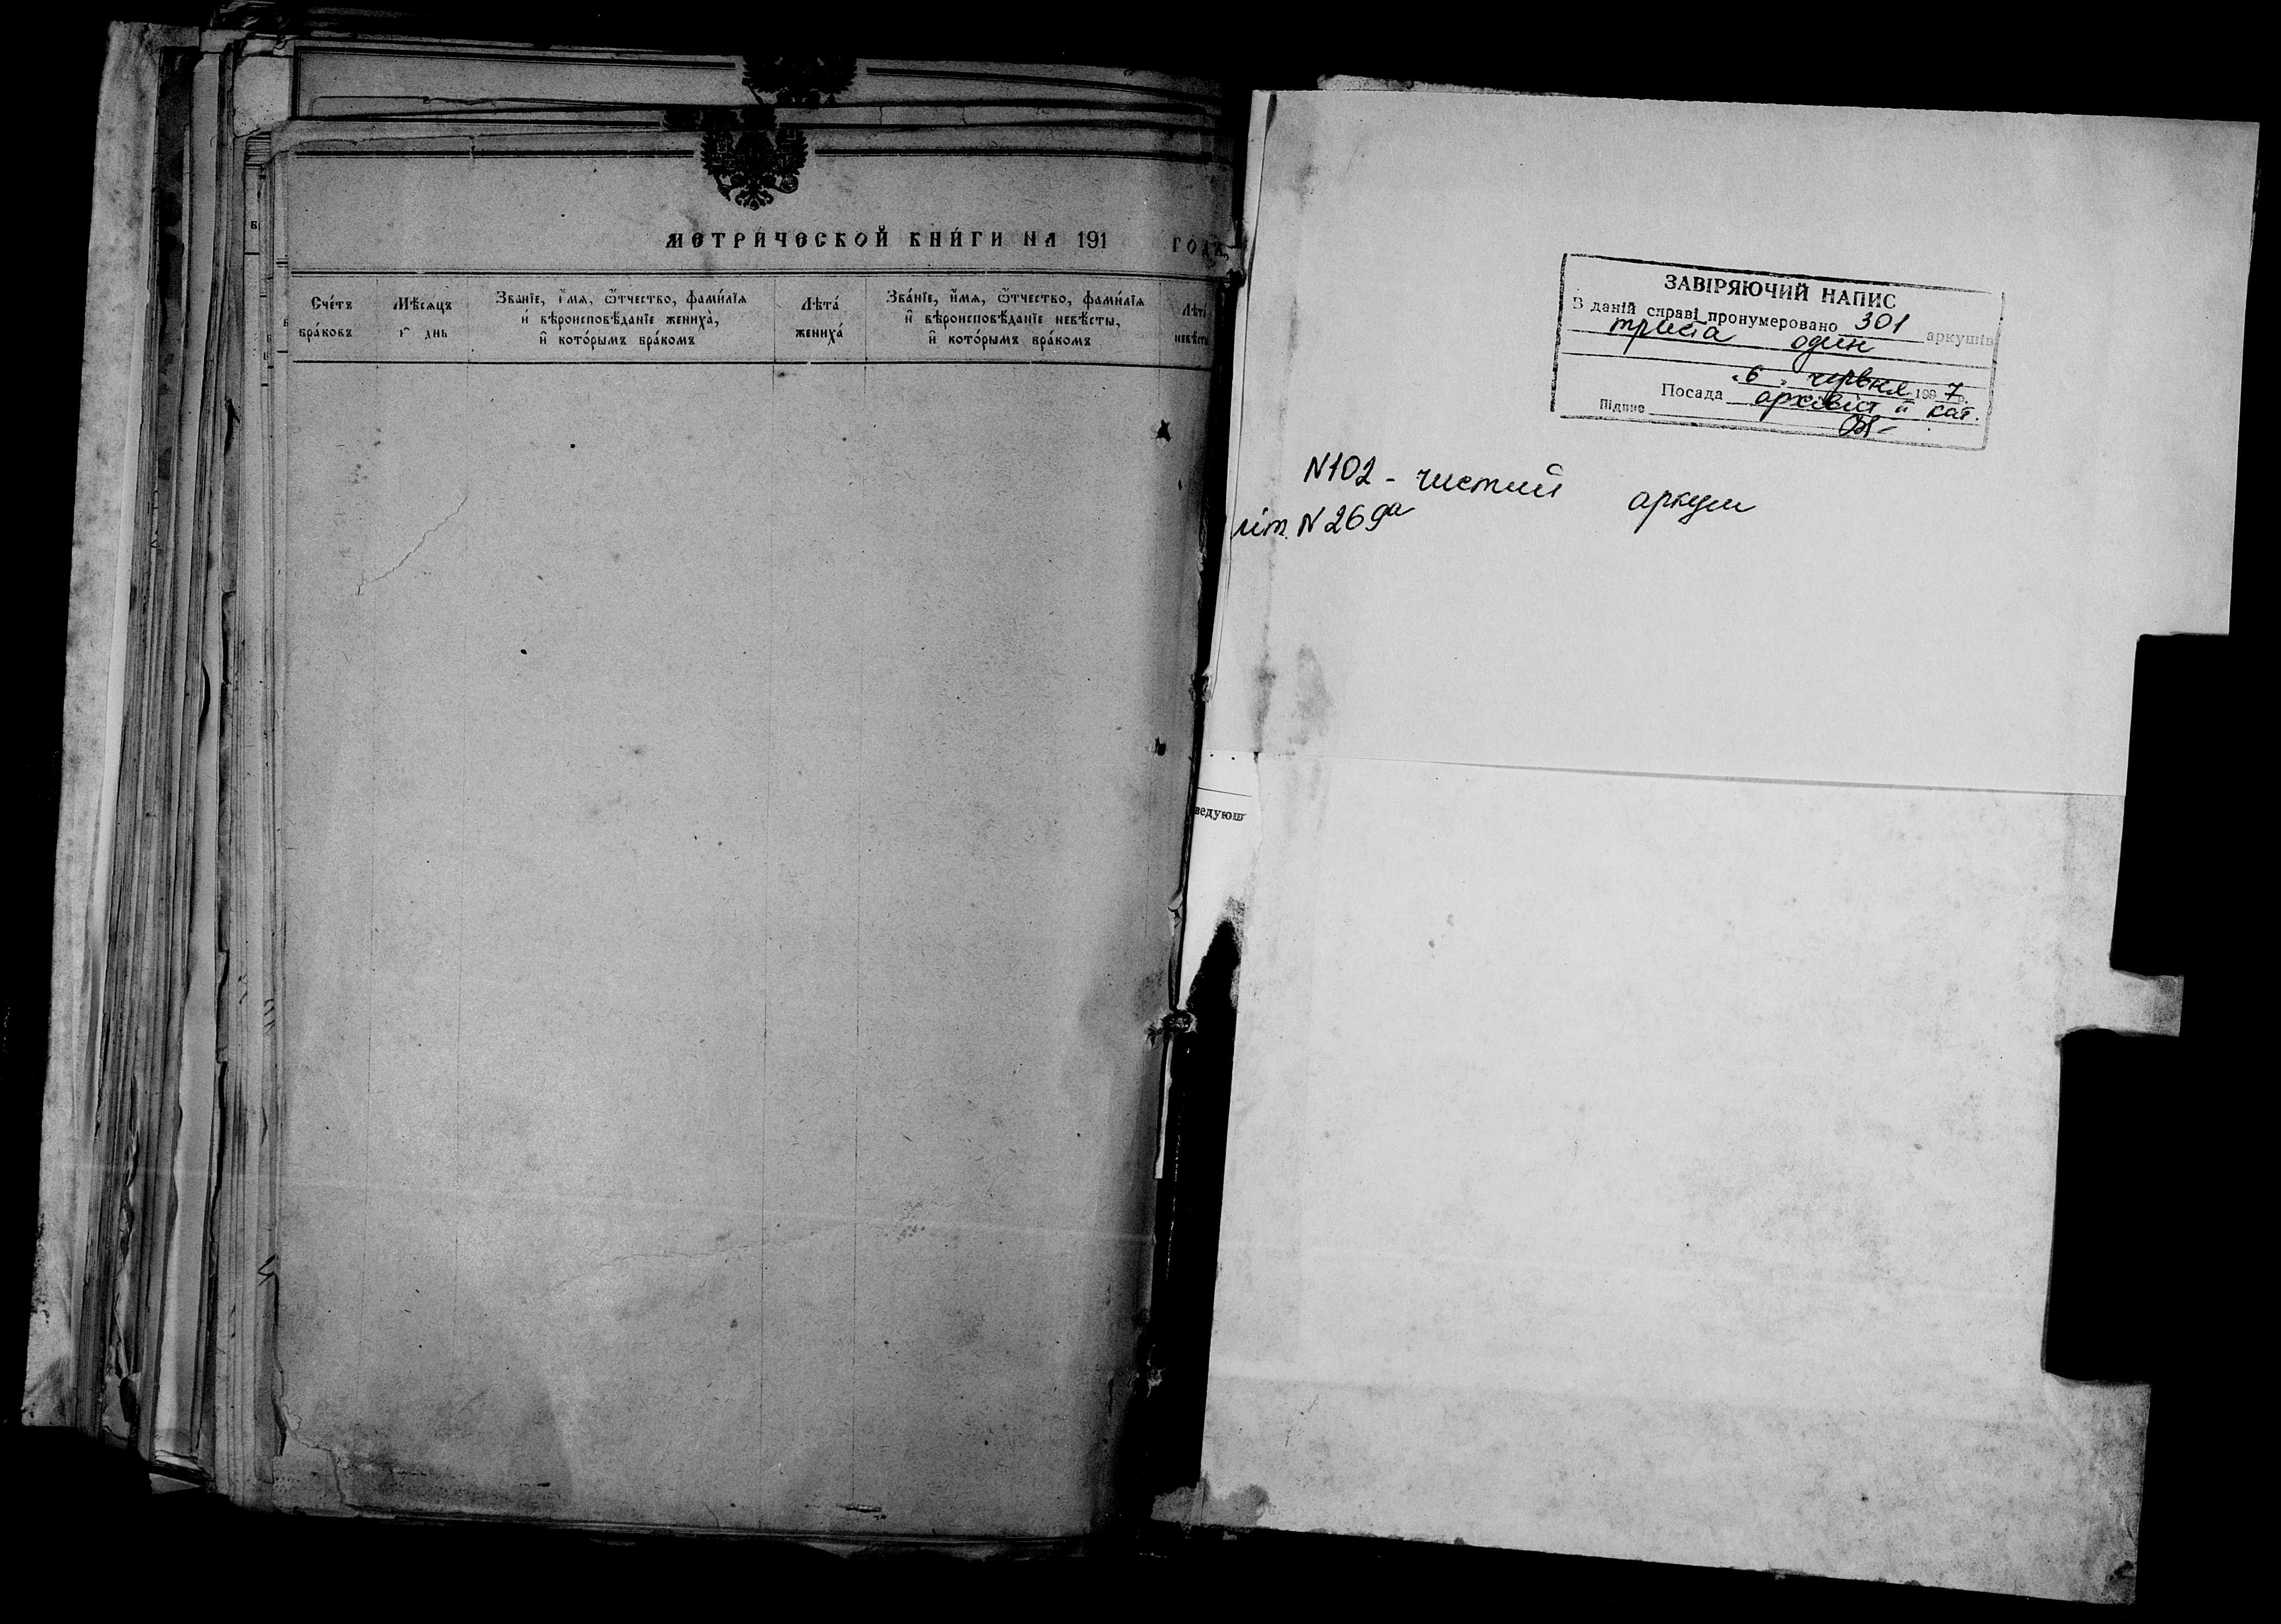 МЕТРИ́ЧЕСКОЙ КНИ́ГИ НА 191 ГОДЪ,
Сче́тъ
бра́ковъ
Мѣ́сяцъ
и҆ днь
Званїе, и҆́мя, ѿтчество, фами́лїя
и҆ вѣроисповѣ́данїе жениха̀,
и҆ кото́рымъ бра́комъ
Лѣта́
жениха́
Зва́нїе, и҆́мя, ѿтчество, фами́лїя
и҆ вѣроисповѣ́данїе невѣ́сты,
и҆ кото́рымъ бра́комъ
Лѣта́
невѣсты
ведующ
ЗАВІРЯЮЧИЙ НАПИС
В даній справі пронумеровано 301 аркушів
триста один
"6" червня 1997 р.
Посада архівіст ІІ кат.
Підпис
N102 - чистий аркуш
літ. N269а